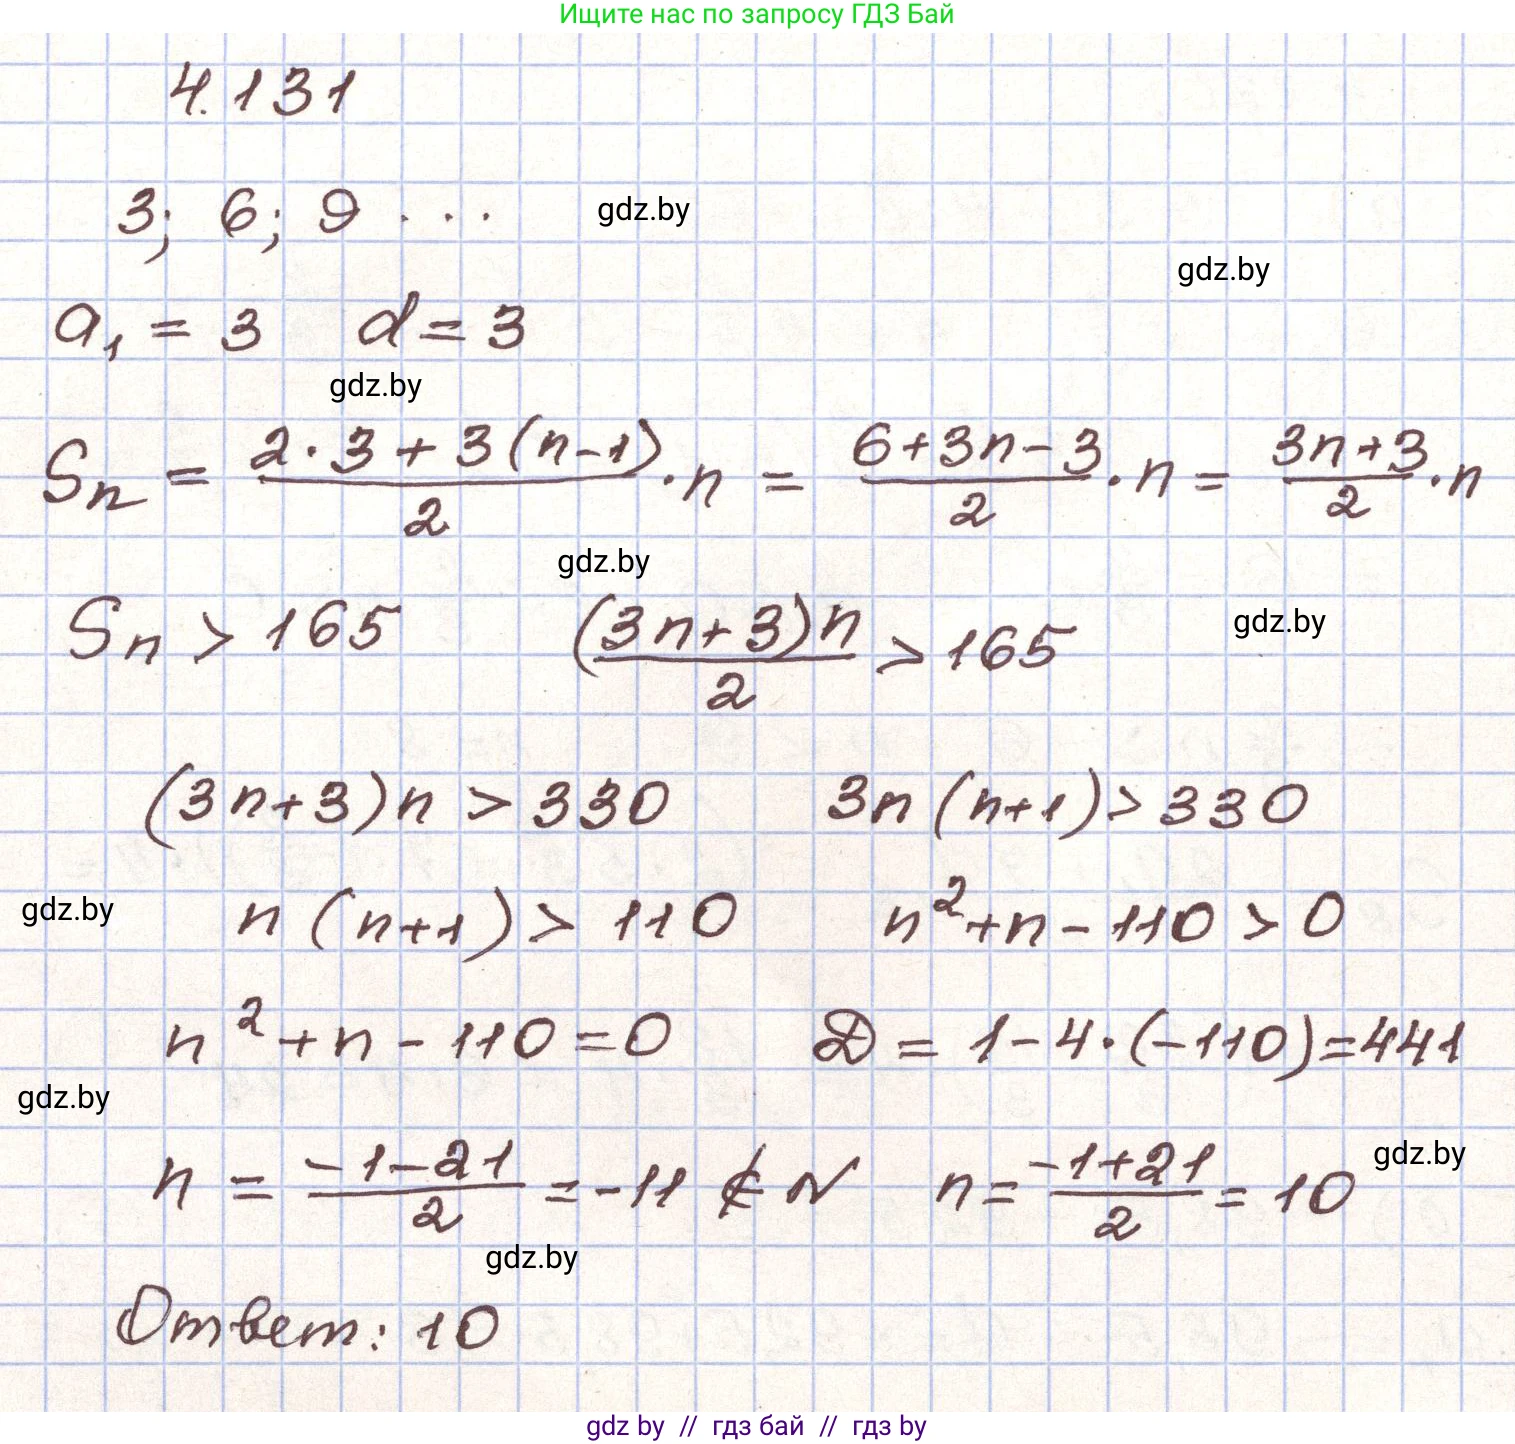 Ищите нас по запросу ГДЗ Бай
4.131
3; 6; 9 ... gdz.by
gdz.by
a₁ = 3 d = 3
gdz.by
Sₙ = (2·3 + 3(n-1))/2 · n = (6+3n-3)/2 · n = (3n+3)/2 · n
gdz.by
Sₙ > 165 ((3n+3)n)/2 > 165 gdz.by
(3n+3)n > 330 3n(n+1) > 330
gdz.by n(n+1) > 110 n² + n - 110 > 0
n² + n - 110 = 0 D = 1 - 4·(-110) = 441
gdz.by
n = (-1-21)/2 = -11 ∉ N n = (-1+21)/2 = 10 gdz.by
gdz.by
Ответ: 10
gdz by // гдз бай // гдз by